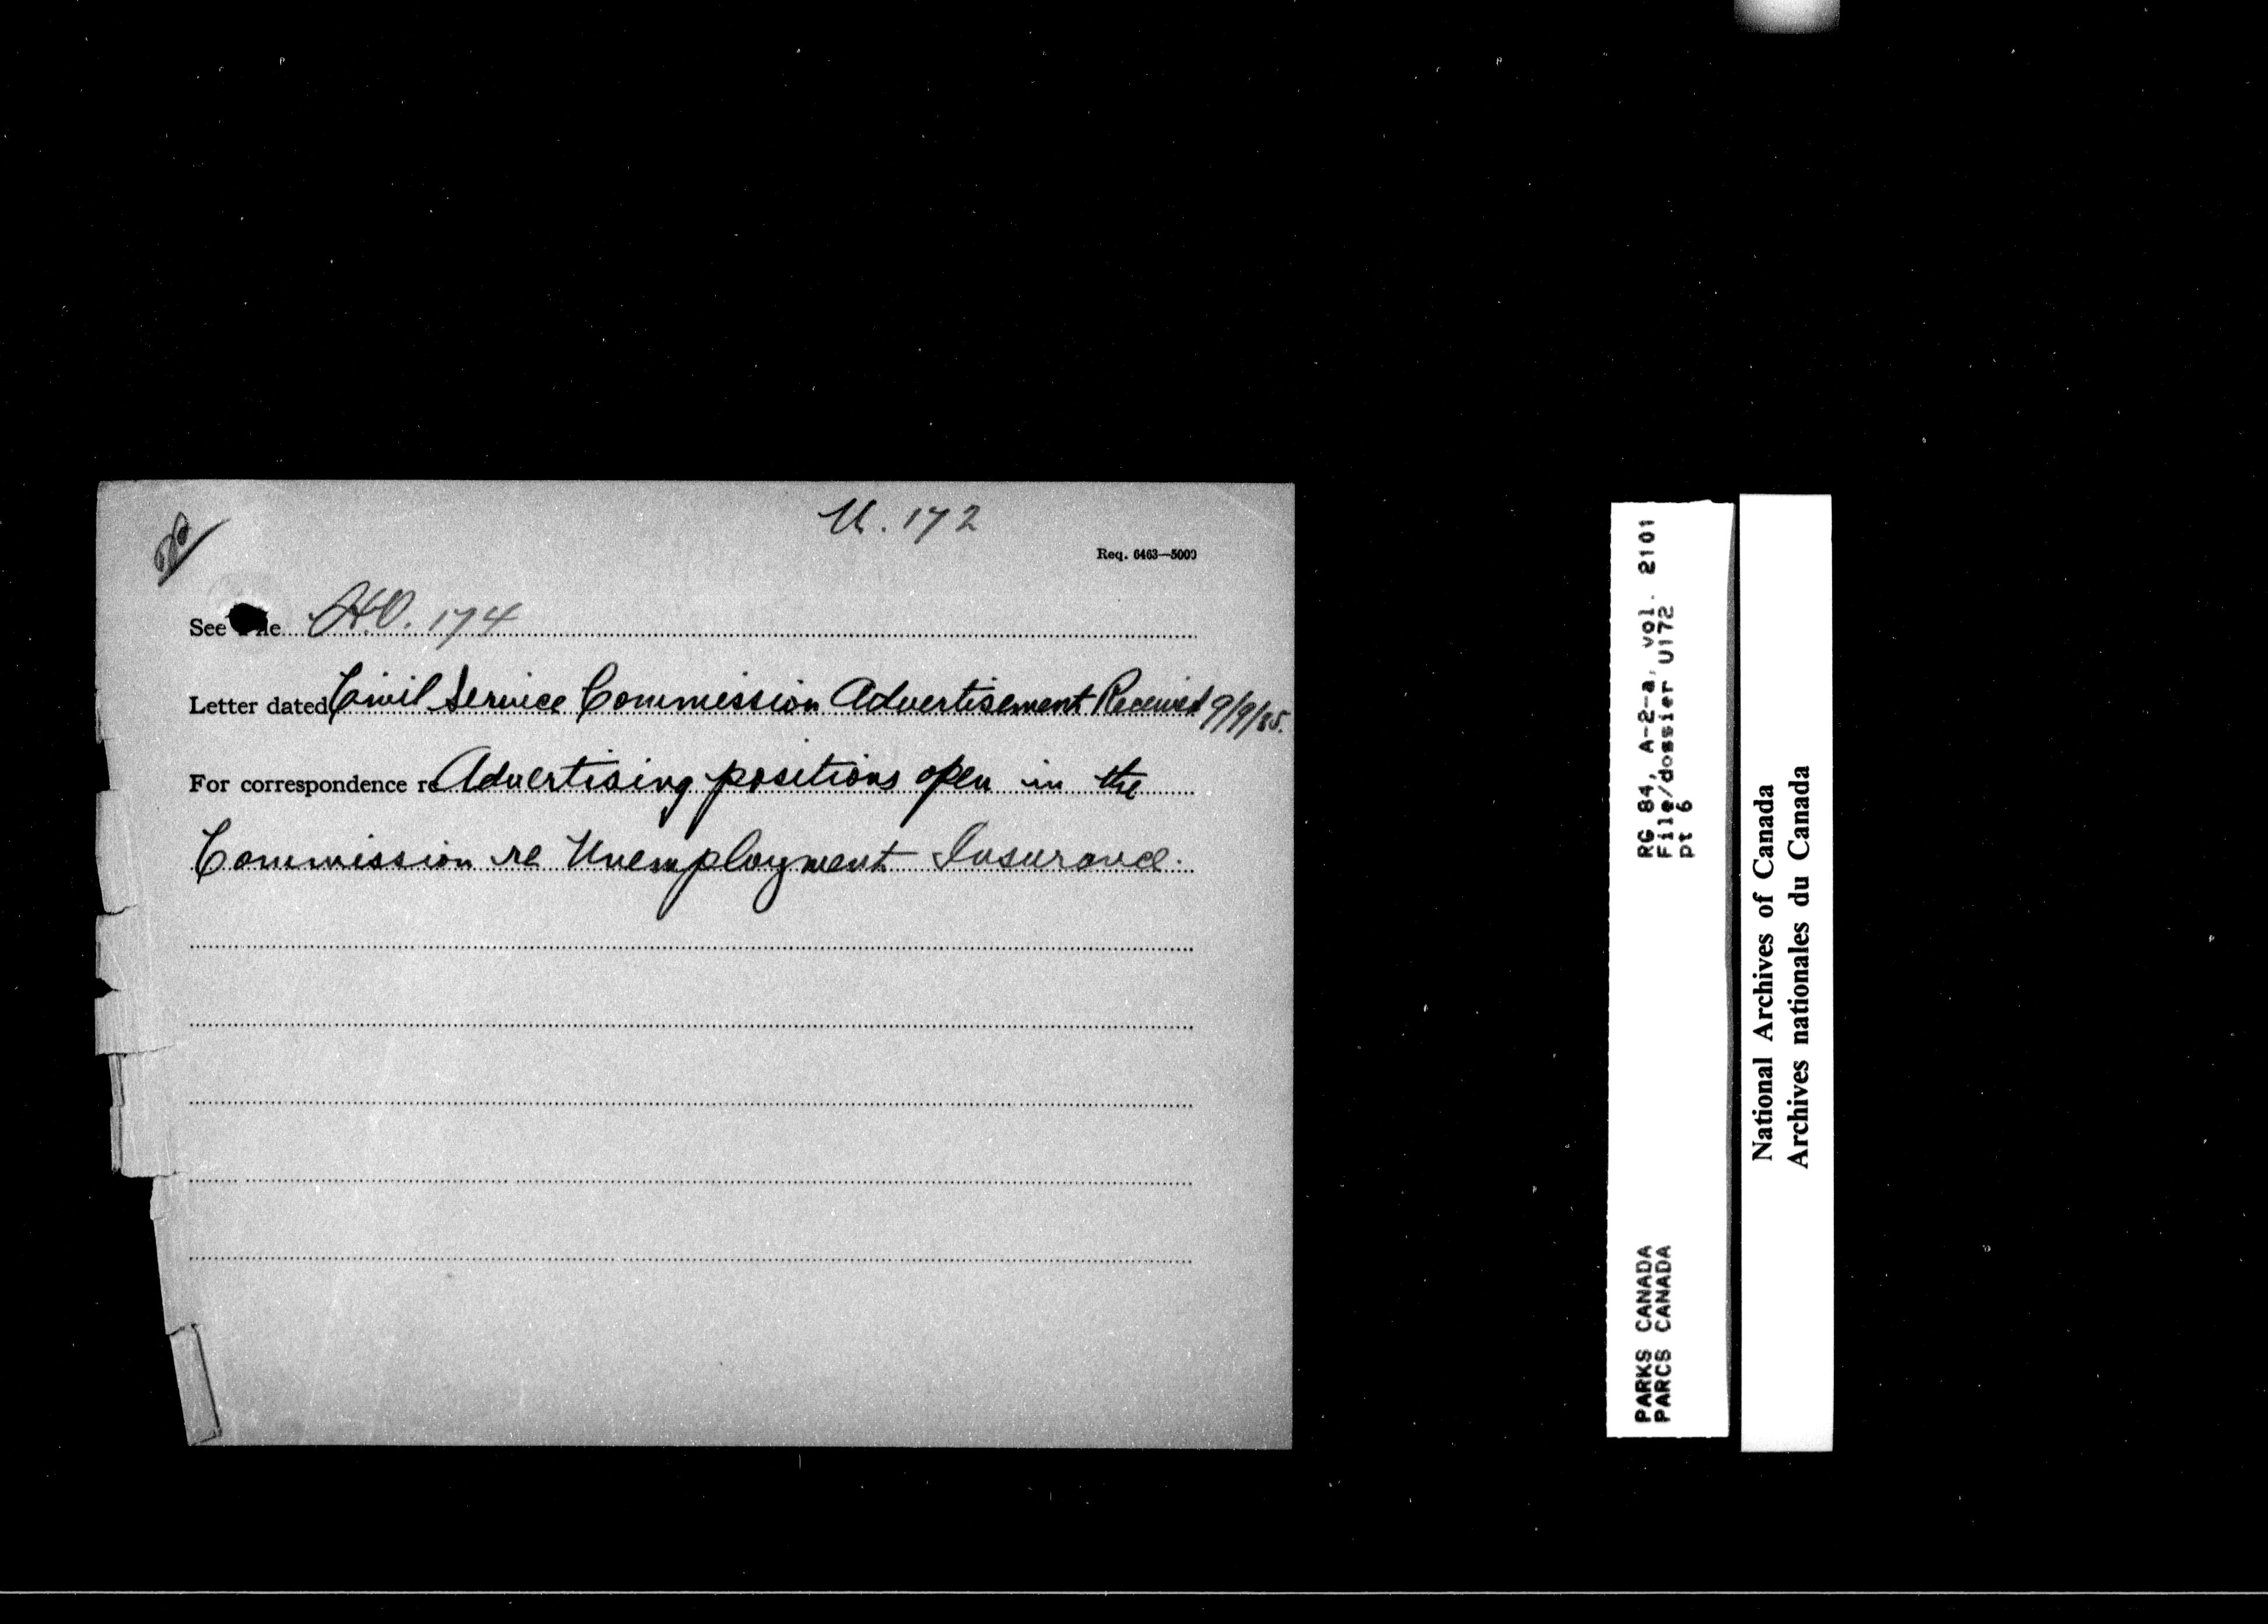 U. 172
Req. 6463—5000
See File H.O. 174
Letter dated Civil Service Commission Advertisement Received 9/9/35.
For correspondence re Advertising positions open in the
Commission re Unemployment Insurance.
RG 84, A-2-a, vol. 2101
File/dossier U172
pt 6
PARKS CANADA
PARCS CANADA
National Archives of Canada
Archives nationales du Canada